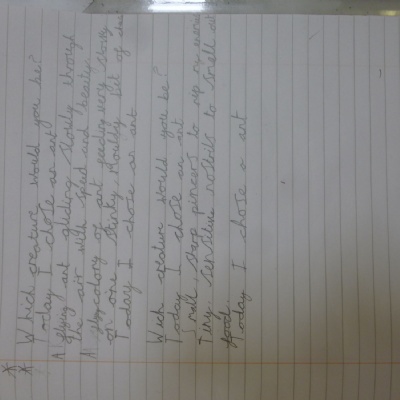 * Which creature would you be?
* Today I chose an ant
A flying ant gliding slowly through
the air with speed and beauty.
A colony of ant feeding very slowly
on one stinky mouldy bit of
Today I chose an ant
Wich creature would you be?
Today I chose an ant
Small sharp pincers to rip my enemies
Tiny sensitive nostrils to smell out
food.
Today I chose a ant